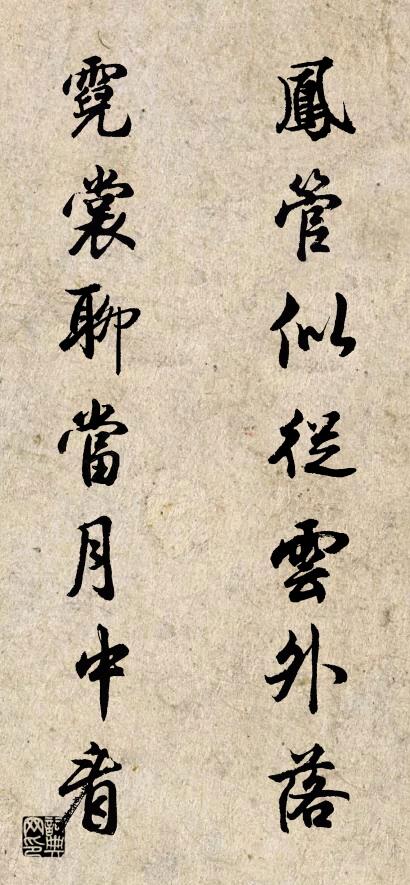 鳳管似從雲外落
霓裳聊當月中看